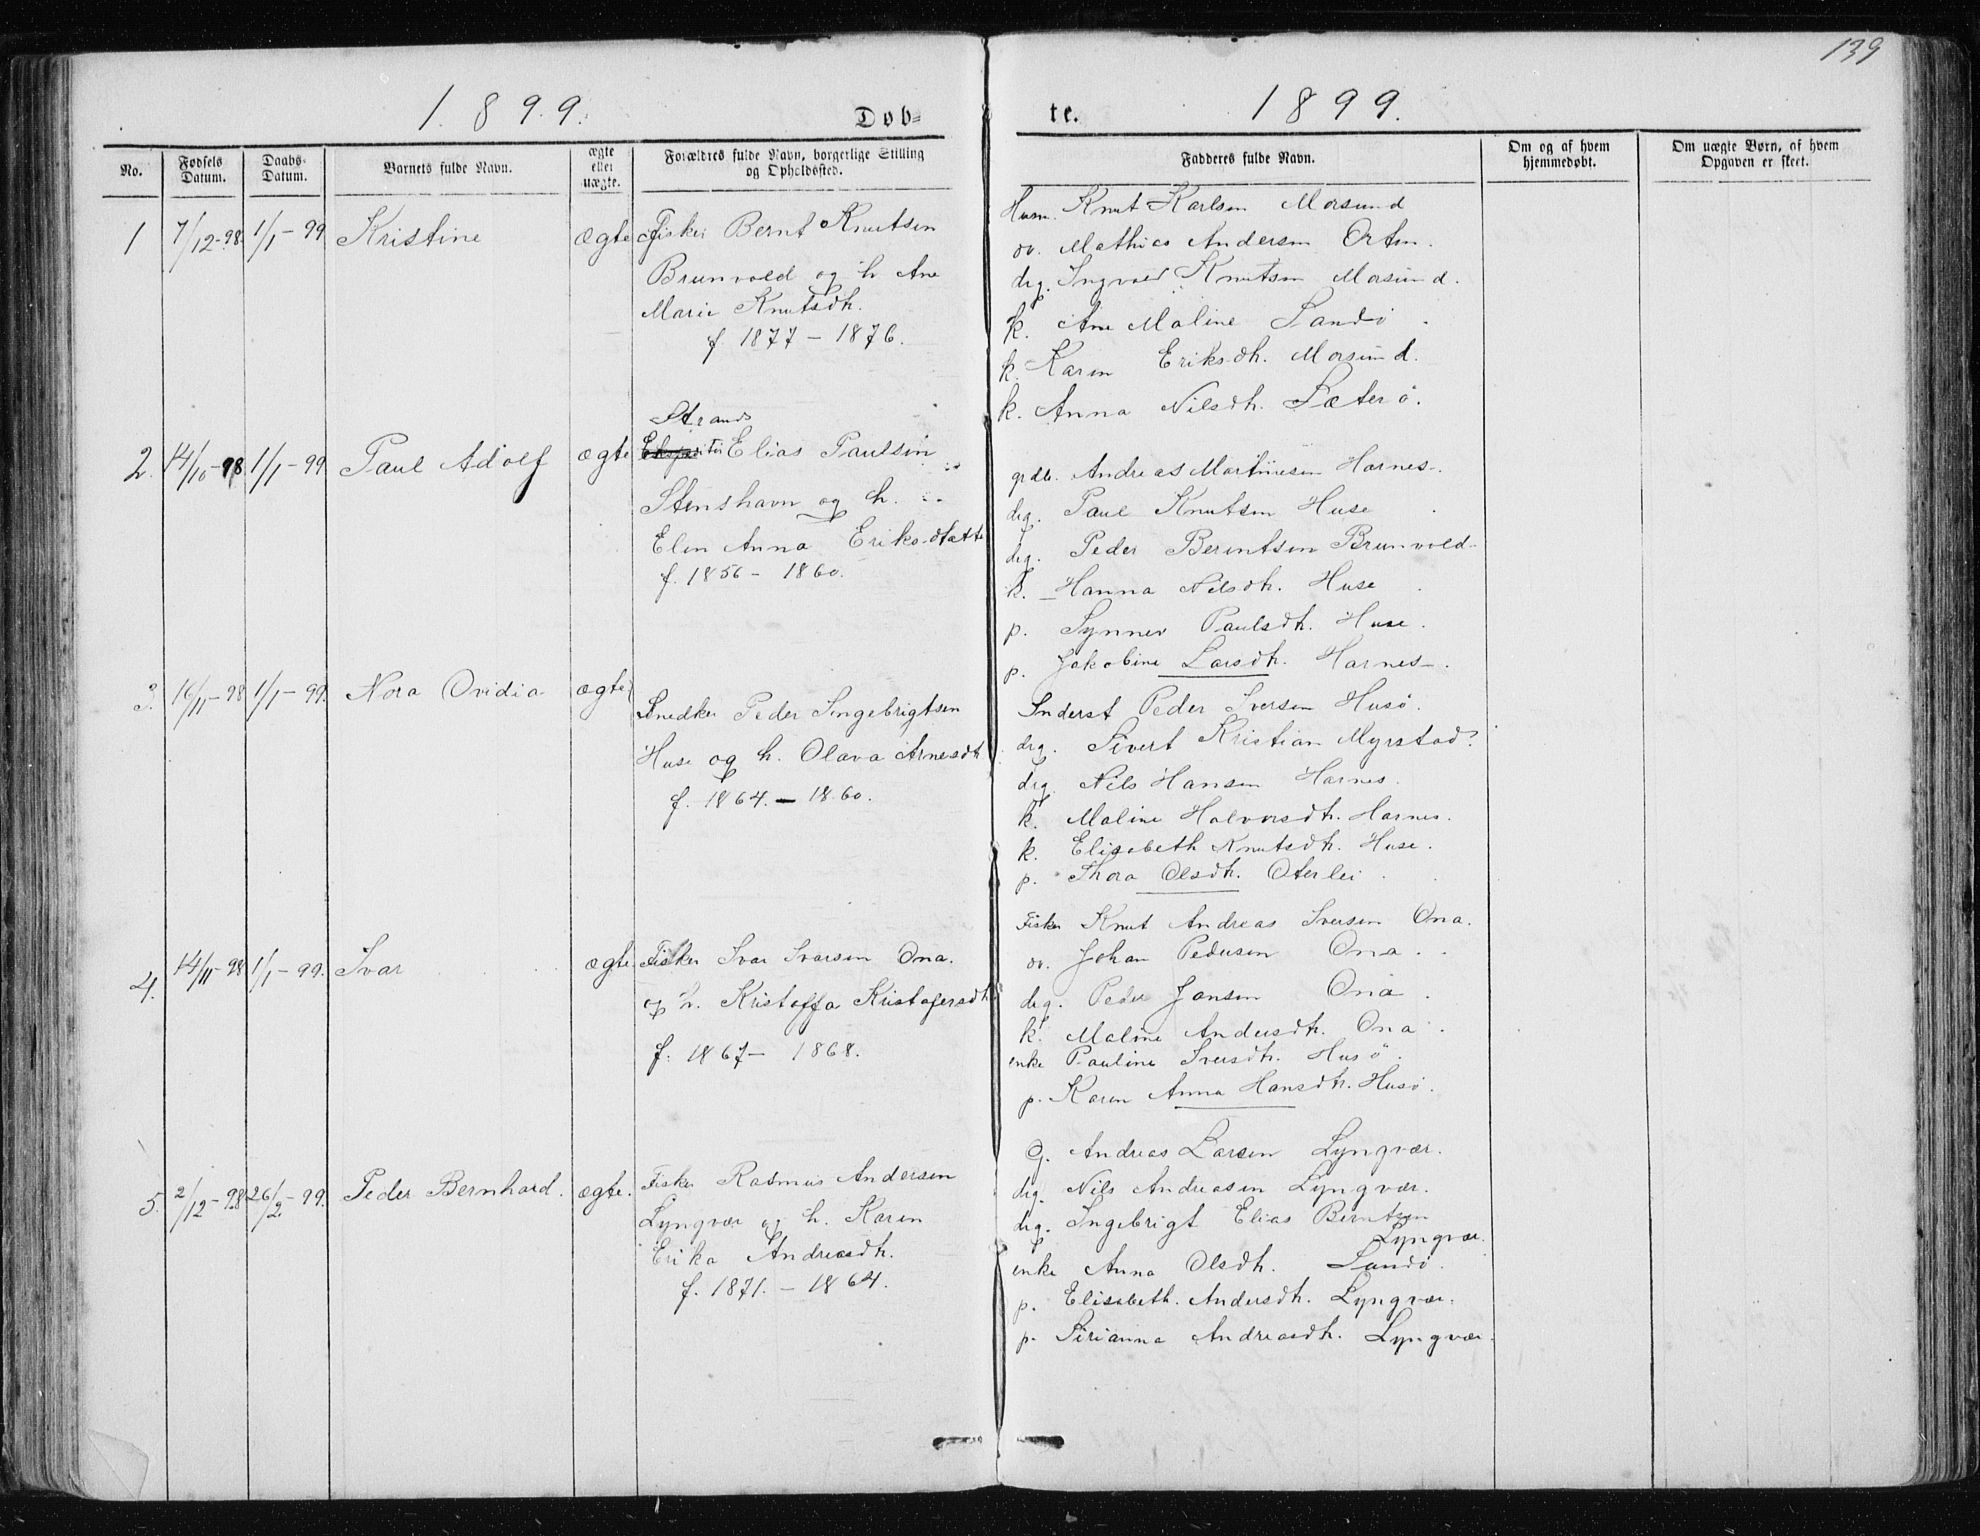 139
1899. Døb=
te. 1899.
No. Fødsels Datum. Daabs-Datum. Barnets fulde Navn. ægte eller uægte. Forældres fulde Navn, borgerlige Stilling og Opholdssted.
Fadderes fulde Navn. Om og af hvem hjemmedøbt. Om uægte Børn, af hvem Opgaven er skeet.
1 7/12-98. 1/1-99 Kristine ægte Fisker Bernt Knutsen
Brunvold og h. Ane
Marie Knutsdtr.
f. 1877 - 1876.
Husm. Knut Karlsen Morsund
ov. Mathias Andersen Orten.
drg. Ingvald Knutsen Morsund.
k. Ane Maline Sandø.
k. Karen Eriksdtr. Morsund.
k. Anna Nilsdtr. Sæterø.
Strand
2. 14/10-98 1/1-99 Paul Adolf ægte Elias Paulsen
Stenshavn og h.
Elen Anna Eriksdatte
f. 1856 - 1860.
grdb. Andreas Martinesen Harnes.
drg. Paul Knutsen Huse
drg. Peder Berentsen Brunvold
k. Hanna Nilsdtr. Huse
p. Synnev Paulsdtr. Huse.
p. Jakobine Larsdtr. Harnes.
3. 16/11-98 1/1-99. Nora Ovidia ægte
Snedker Peder Ingebrigtsen
Huse og h. Olava Arnesdtr
f. 1864. - 1860.
Inderst Peder Iversen Husø.
drg. Sivert Kristian Myrstad?
drg. Nils Hansen Harnes.
k. Maline Halvorsdtr. Harnes.
k. Elisabeth Knutsdtr. Huse.
p. Thora Olsdtr. Oterlei.
4. 14/11-98 1/1-99. Ivar ægte. Fisker Ivar Ivarsen Ona.
og h. Kristoffa Kristofersdtr
f. 1867 - 1868.
Fisker Knut Andreas Iversen Ona.
ov. Johan Pedersen Ona.
drg. Peder Jansen Ona.
k. Maline Andersdtr. Ona.
enke Pauline Iversdtr. Husø.
p. Karen Anna Hansdtr. Husø.
5. 2/12-98 26/2-99. Peder Bernhard. ægte. Fisker Rasmus Andersen
Lyngvær og h. Karen
Erika Andreasdtr.
f. 1871. - 1864.
g. Andreas Larsen Lyngvær.
drg. Nils Andreasen Lyngvær.
drg. Ingebrigt Elias Berntsen
Lyngvær.
enke Anna Olsdtr. Sandø.
p. Elisabeth. Andersdtr. Lyngvær.
p. Sirianna Andreasdtr. Lyngvær.